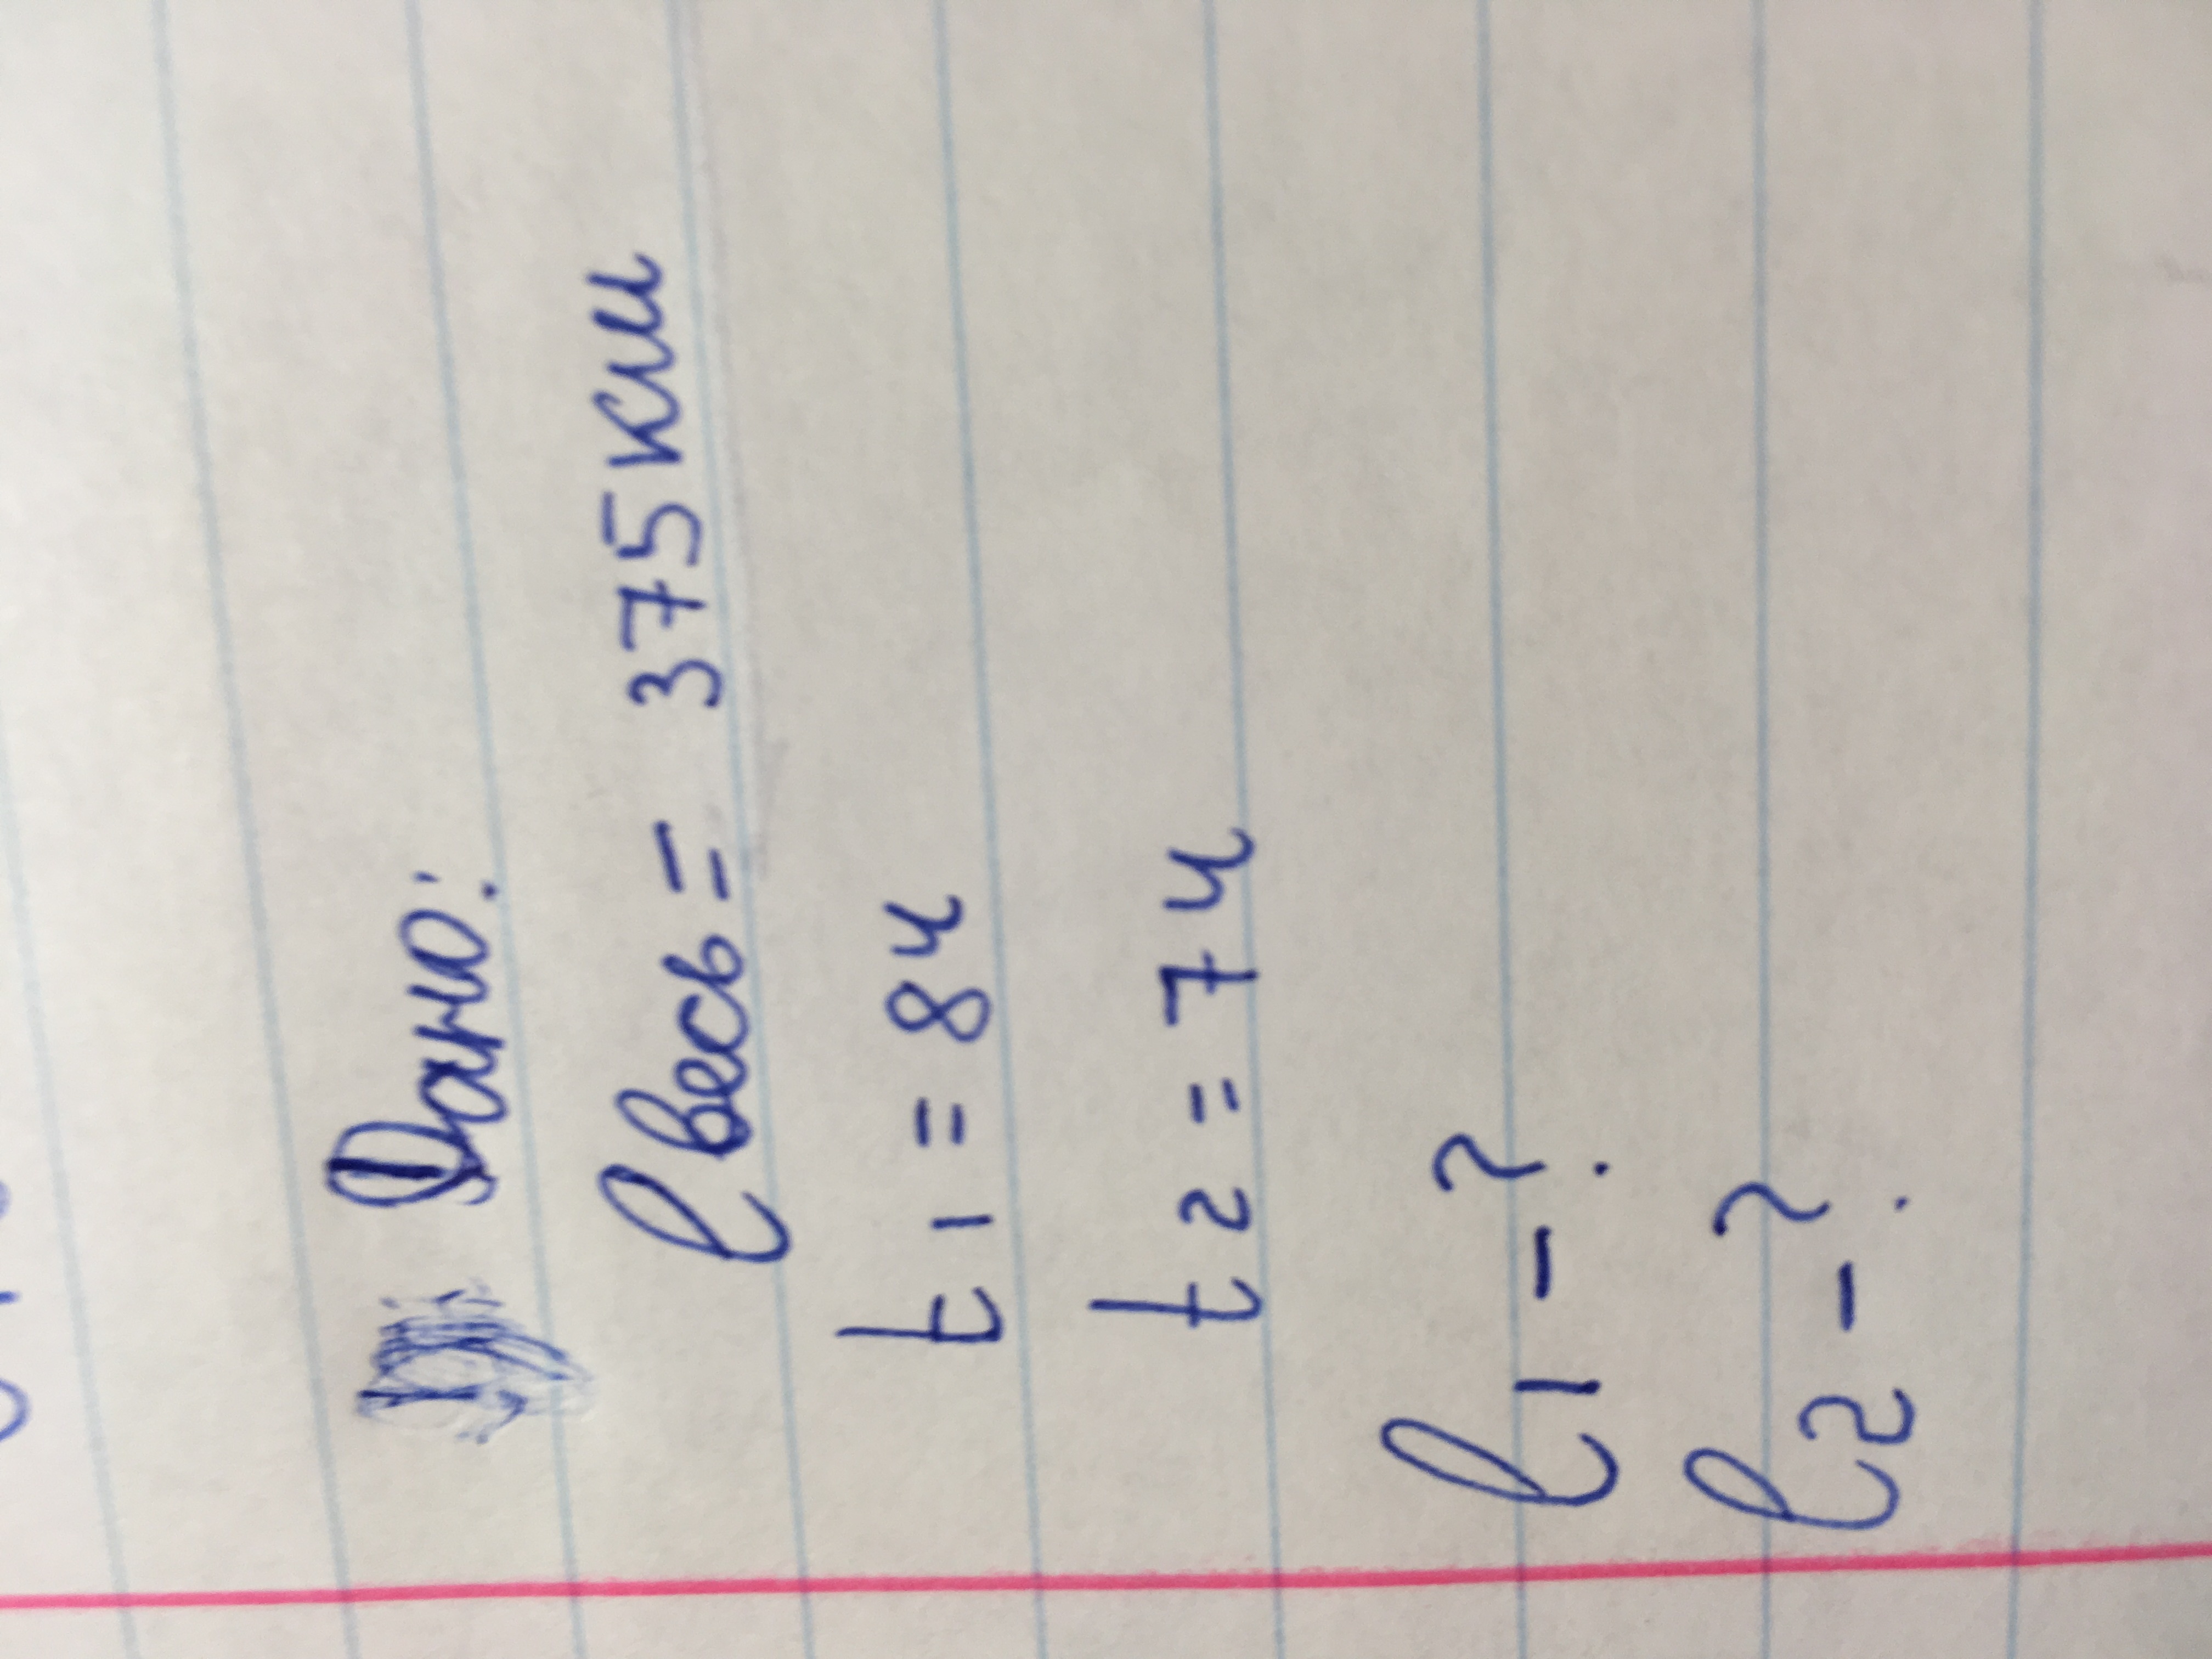 Дано:
l весь = 375 км
t1 = 8 ч
t2 = 7 ч
l1 - ?
l2 - ?